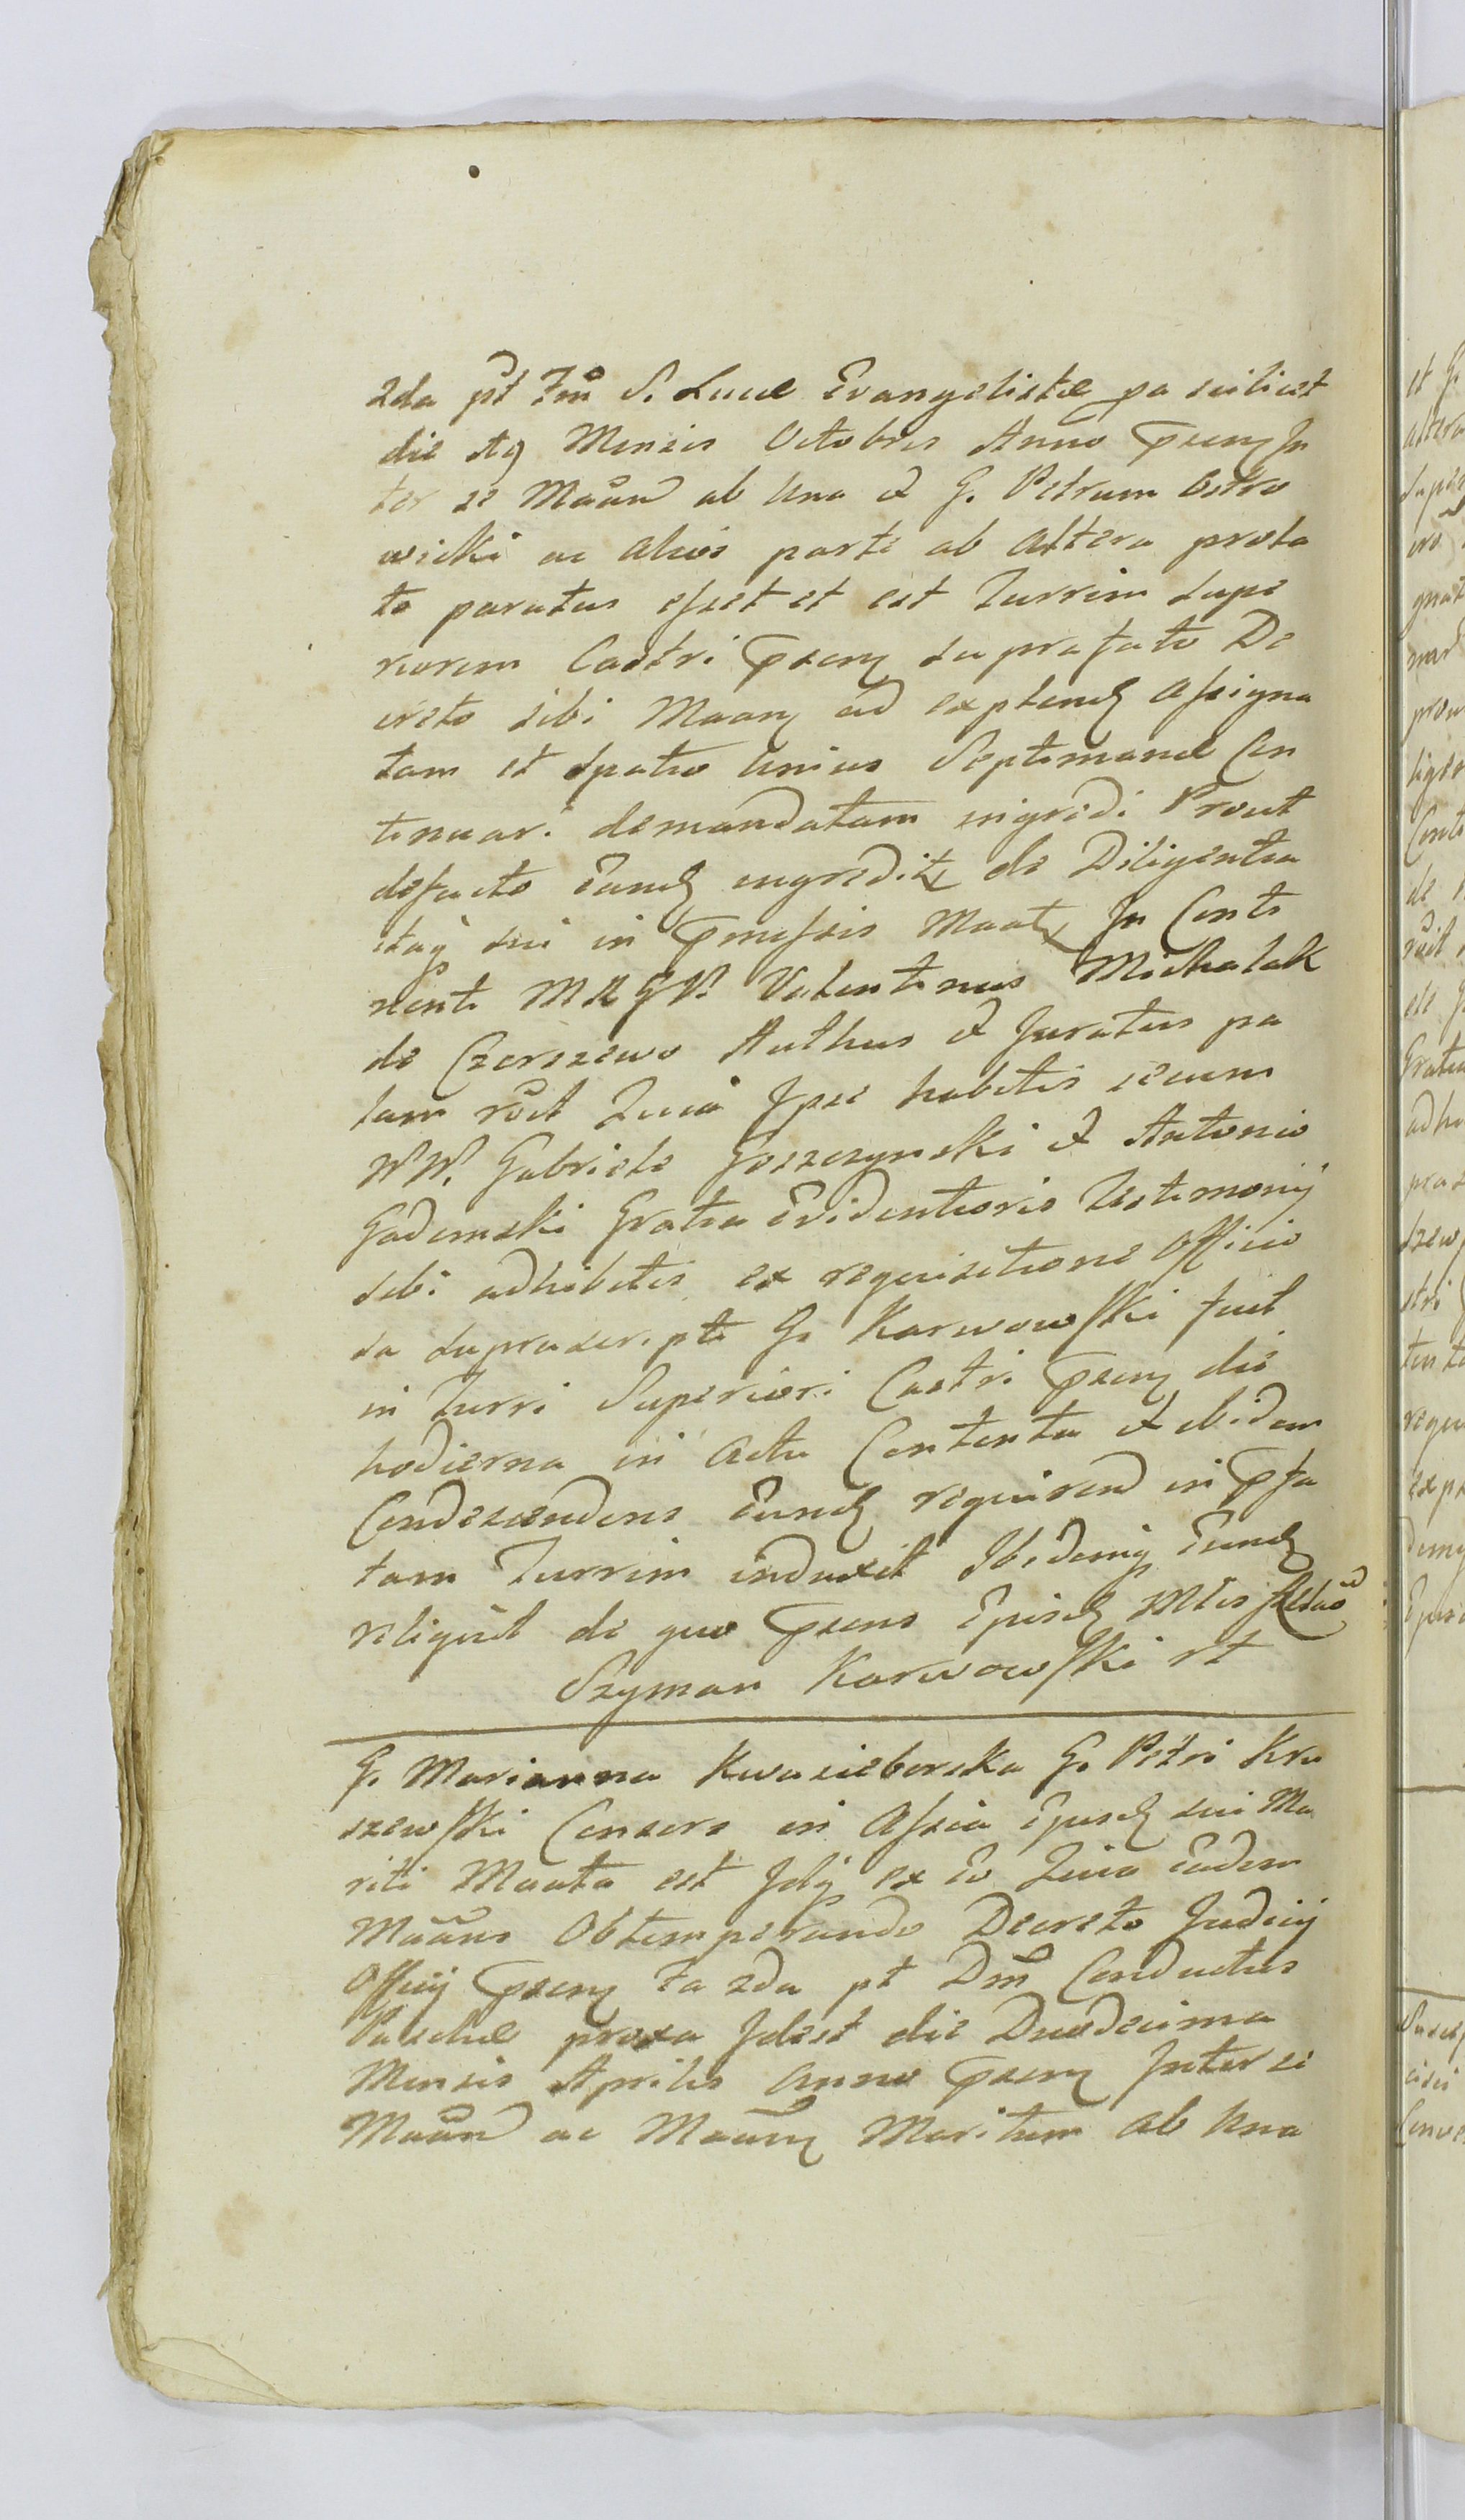 2da pt Fm S. Lucæ Evangelistæ pa scilicet
die 19 Mensis Octobris Anno psenz In
ter se Maan ab Una et G. Petrum Ostro
wicki ac alios parte ab Altera prola
to paratus esset et est Turrim Supe
riorem Castri psenz suprafato De
creto sibi Maanz ad explend Assigna
tam et Spatio Unius Septimanæ Con
tinuari demandatam ingredi Prout
defacto Eund ingredit de Diligentia
itaq sui in pmissis Maat In Conti
nenti M R G Valentinus Michalak
de Czerszewo Authus et Juratus pa
lam Quia Ipse habitis secum
W W. Gabriele Goszczynski et Antonio
Gadomski Gratia Evidentioris Testimonij
sibi adhibitis ex requisitione Officio
sa suprascripti G. Karwowski fuit
in Turri Superiori Castri psenz die
hodierna in Actu Contenta et ibidem
Condescendens Eund requirend in pfa
tam Turrim induxit Ibidemq Eund
reliquit de quo psens Ejusd
Szyman Karwowski
G. Marianna Kwasieborska G. Petri Kra
szewski Consors in Assia Ejusd sui Ma
riti Maata est Idq ex Eo Quia Eadem
Maans Obtemperando Decreto Judicij
Officij psenz Fa 2da pt Dm Conductus
Paschæ proxa Idest die Duodecima
Mensis Aprilis Anno psenz Inter se
Maan ac Maanz Maritum ab Una